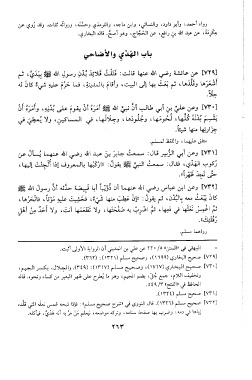 رواه أحمد، وأبو داود، والنسائي، وابن ماجه، والترمذي وحسّنه، ورواته ثقات. وقد رُوي عن
عِكْرِمَة، عن عبد الله بن رافع، عن الحجّاج، وهو أصحّ. قاله البخاري.
باب الهَدْي والأضاحي
[٧٢٩] عن عائشة رضي الله عنها قالت: فَتَلْتُ قَلَائِدَ بُدْنِ رسولِ الله ﷺ بِيَدَيَّ، ثم
أَشْعَرَها وقَلَّدَها، ثم بَعَثَ بها إلى البيت، وأقامَ بالمدينةِ، فما حَرُمَ عليه شيءٌ كان له
حِلًّا.
[٧٣٠] وعن علي بن أبي طالب أنَّ نبيَّ الله ﷺ أَمَرَهُ أنْ يقومَ على بُدْنِهِ، وأَمَرَهُ أنْ
يَقْسِمَ بُدْنَهُ كُلَّها، لُحومَها، وجُلودَها، وجِلَالَها، في المساكين، ولا يُعطِيَ في
جِزارَتِها منها شيئًا.
متفق عليهما، واللفظ لمسلم.
[٧٣١] وعن أبي الزُّبير قال: سمعتُ جابرَ بنَ عبد الله رضي الله عنهما يُسألُ عن
رُكوبِ الهَدْيِ، قال: سمعتُ النبيَّ ﷺ يقول: «ارْكَبْها بالمعروفِ إذا أُلْجِئْتَ إليها،
حتى تَجِدَ ظَهْرًا».
[٧٣٢] وعن ابن عباس رضي الله عنهما أنَّ ذُؤَيْبًا أبا قَبِيصَةَ حدَّثه أنَّ رسولَ الله ﷺ
كان يَبْعَثُ معه بالبُدْنِ، ثم يقول: «إنْ عَطِبَ منها شيءٌ، فخَشِيتَ عليه مَوْتًا، فانْحَرْها،
ثم اغْمِسْ نَعْلَها في دَمِها، ثم اضْرِبْ به صَفْحَتَها، ولا تَطْعَمْها أنتَ، ولا أَحَدٌ من أهلِ
رُفْقَتِكَ».
رواهما مسلم.
٧٢٩ صحيح البخاري (١٦٩٩)، وصحيح مسلم (١٣٢١)، (٣٦٢).
٢٦٣